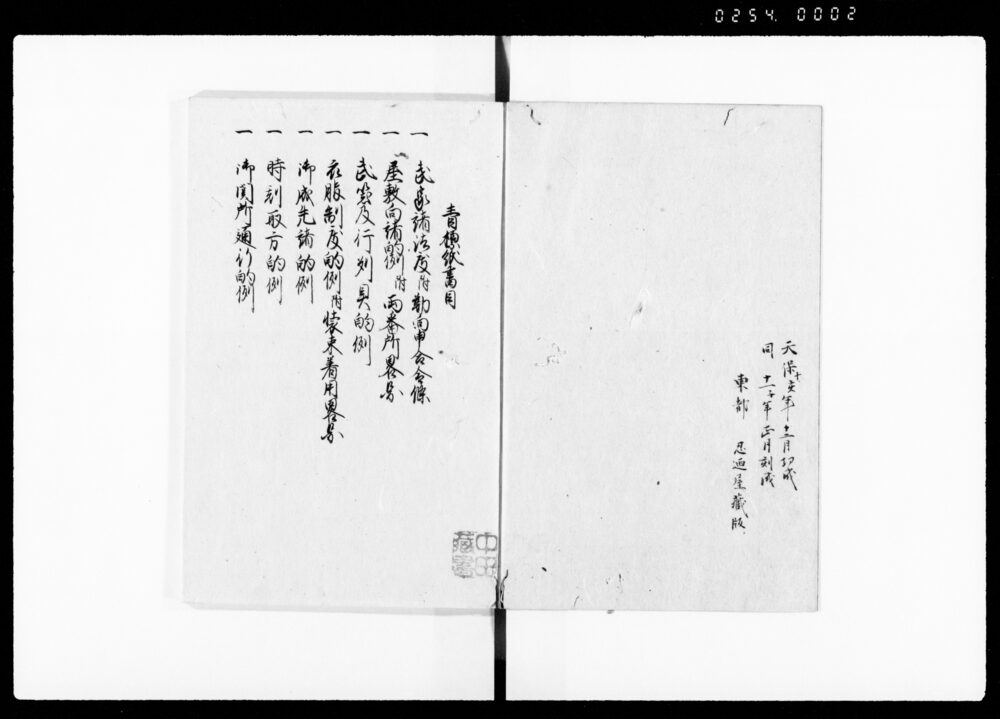 0254.0002
天保十亥年十二月功成
同十一子年正月刻成
東都 忍廼屋蔵版
青標紙書目
一 武家諸法度附勤向申合令條
一 屋敷向諸的例附両番所畧
一 武器及行列具的例
一 衣服制度的例附装束着用畧
一 御成先諸的例
一 時刻取方的例
一 御関所通行的例
中田
蔵書